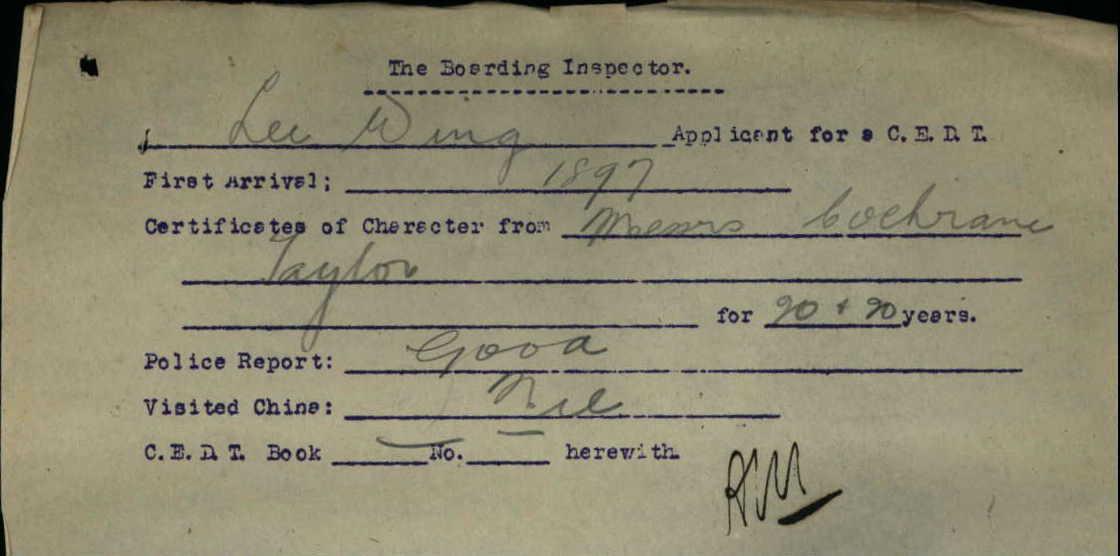 The Boarding Inspector.
Lee Wing Applicant for a C.E.D.T.
First Arrival; 1897
Certificates of Character from Messrs Cochrane
Taylor
for 20 + 20 years.
Police Report: Good
Visited China: Nil
C.E.D.T. Book — No. — herewith.